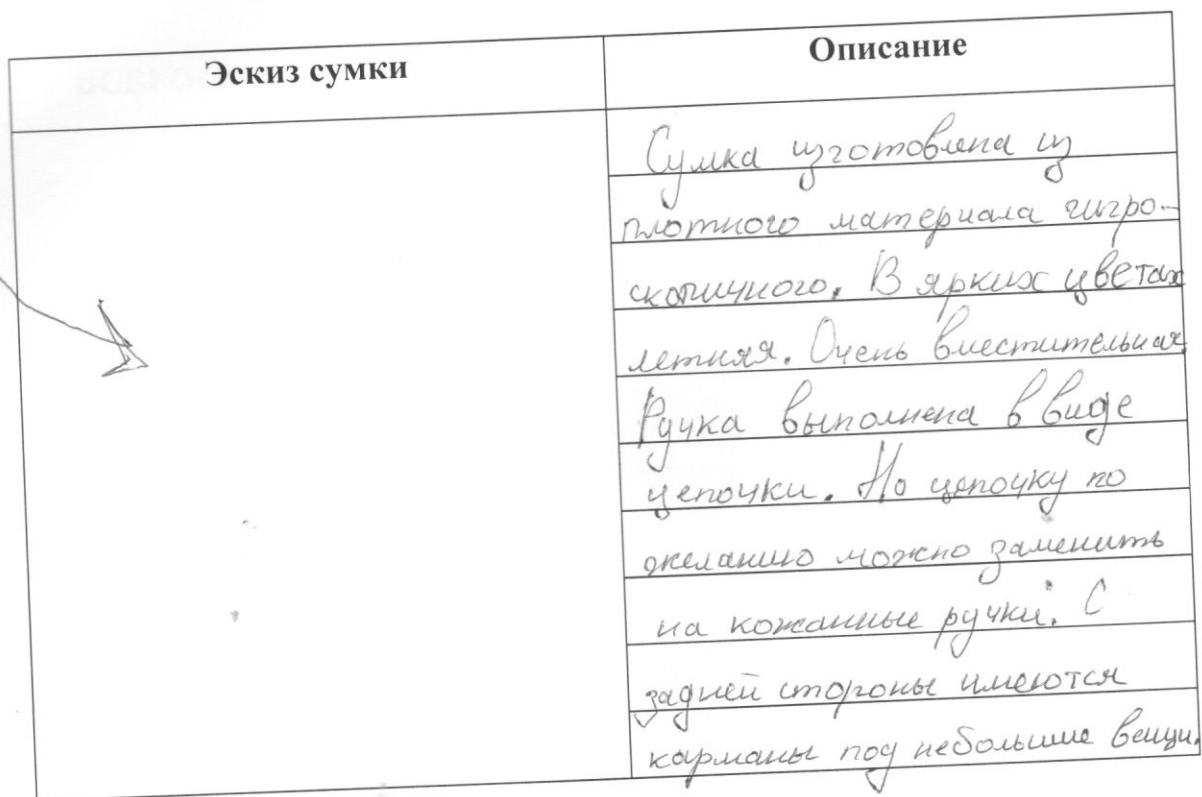 Эскиз сумки
Описание
Сумка изготовлена из
плотного материала гигро-
скопичного. В ярких цветах
летняя. Очень вместительная.
Ручка выполнена в виде
цепочки. Но цепочку по
желанию можно заменить
на кожанные ручки. С
задней стороны имеются
карманы под небольшие вещи.